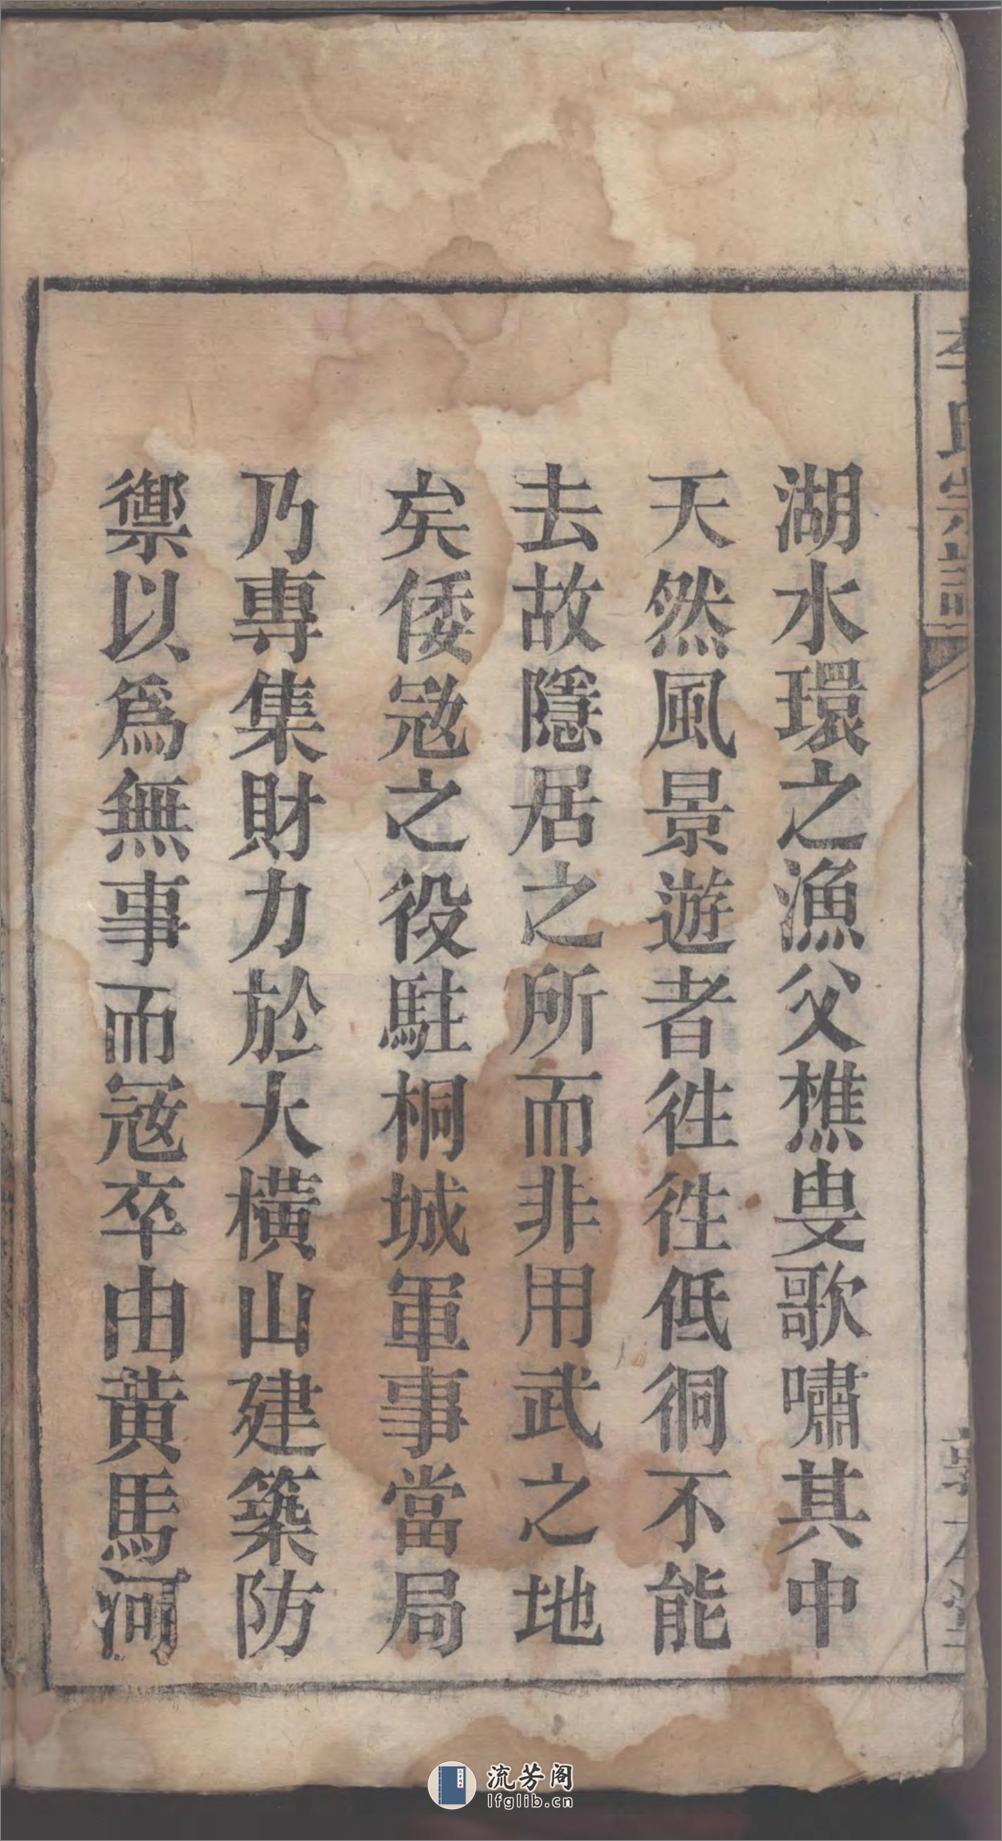 湖水環之漁父樵叟歌嘯其中
天然風景遊者徃徃低徊不能
去故隱居之所而非用武之地
矣倭寇之役駐桐城軍事當局
乃專集財力於大橫山建築防
禦以爲無事而寇卒由黄馬河
李氏宗譜
流芳阁
lfglib.cn